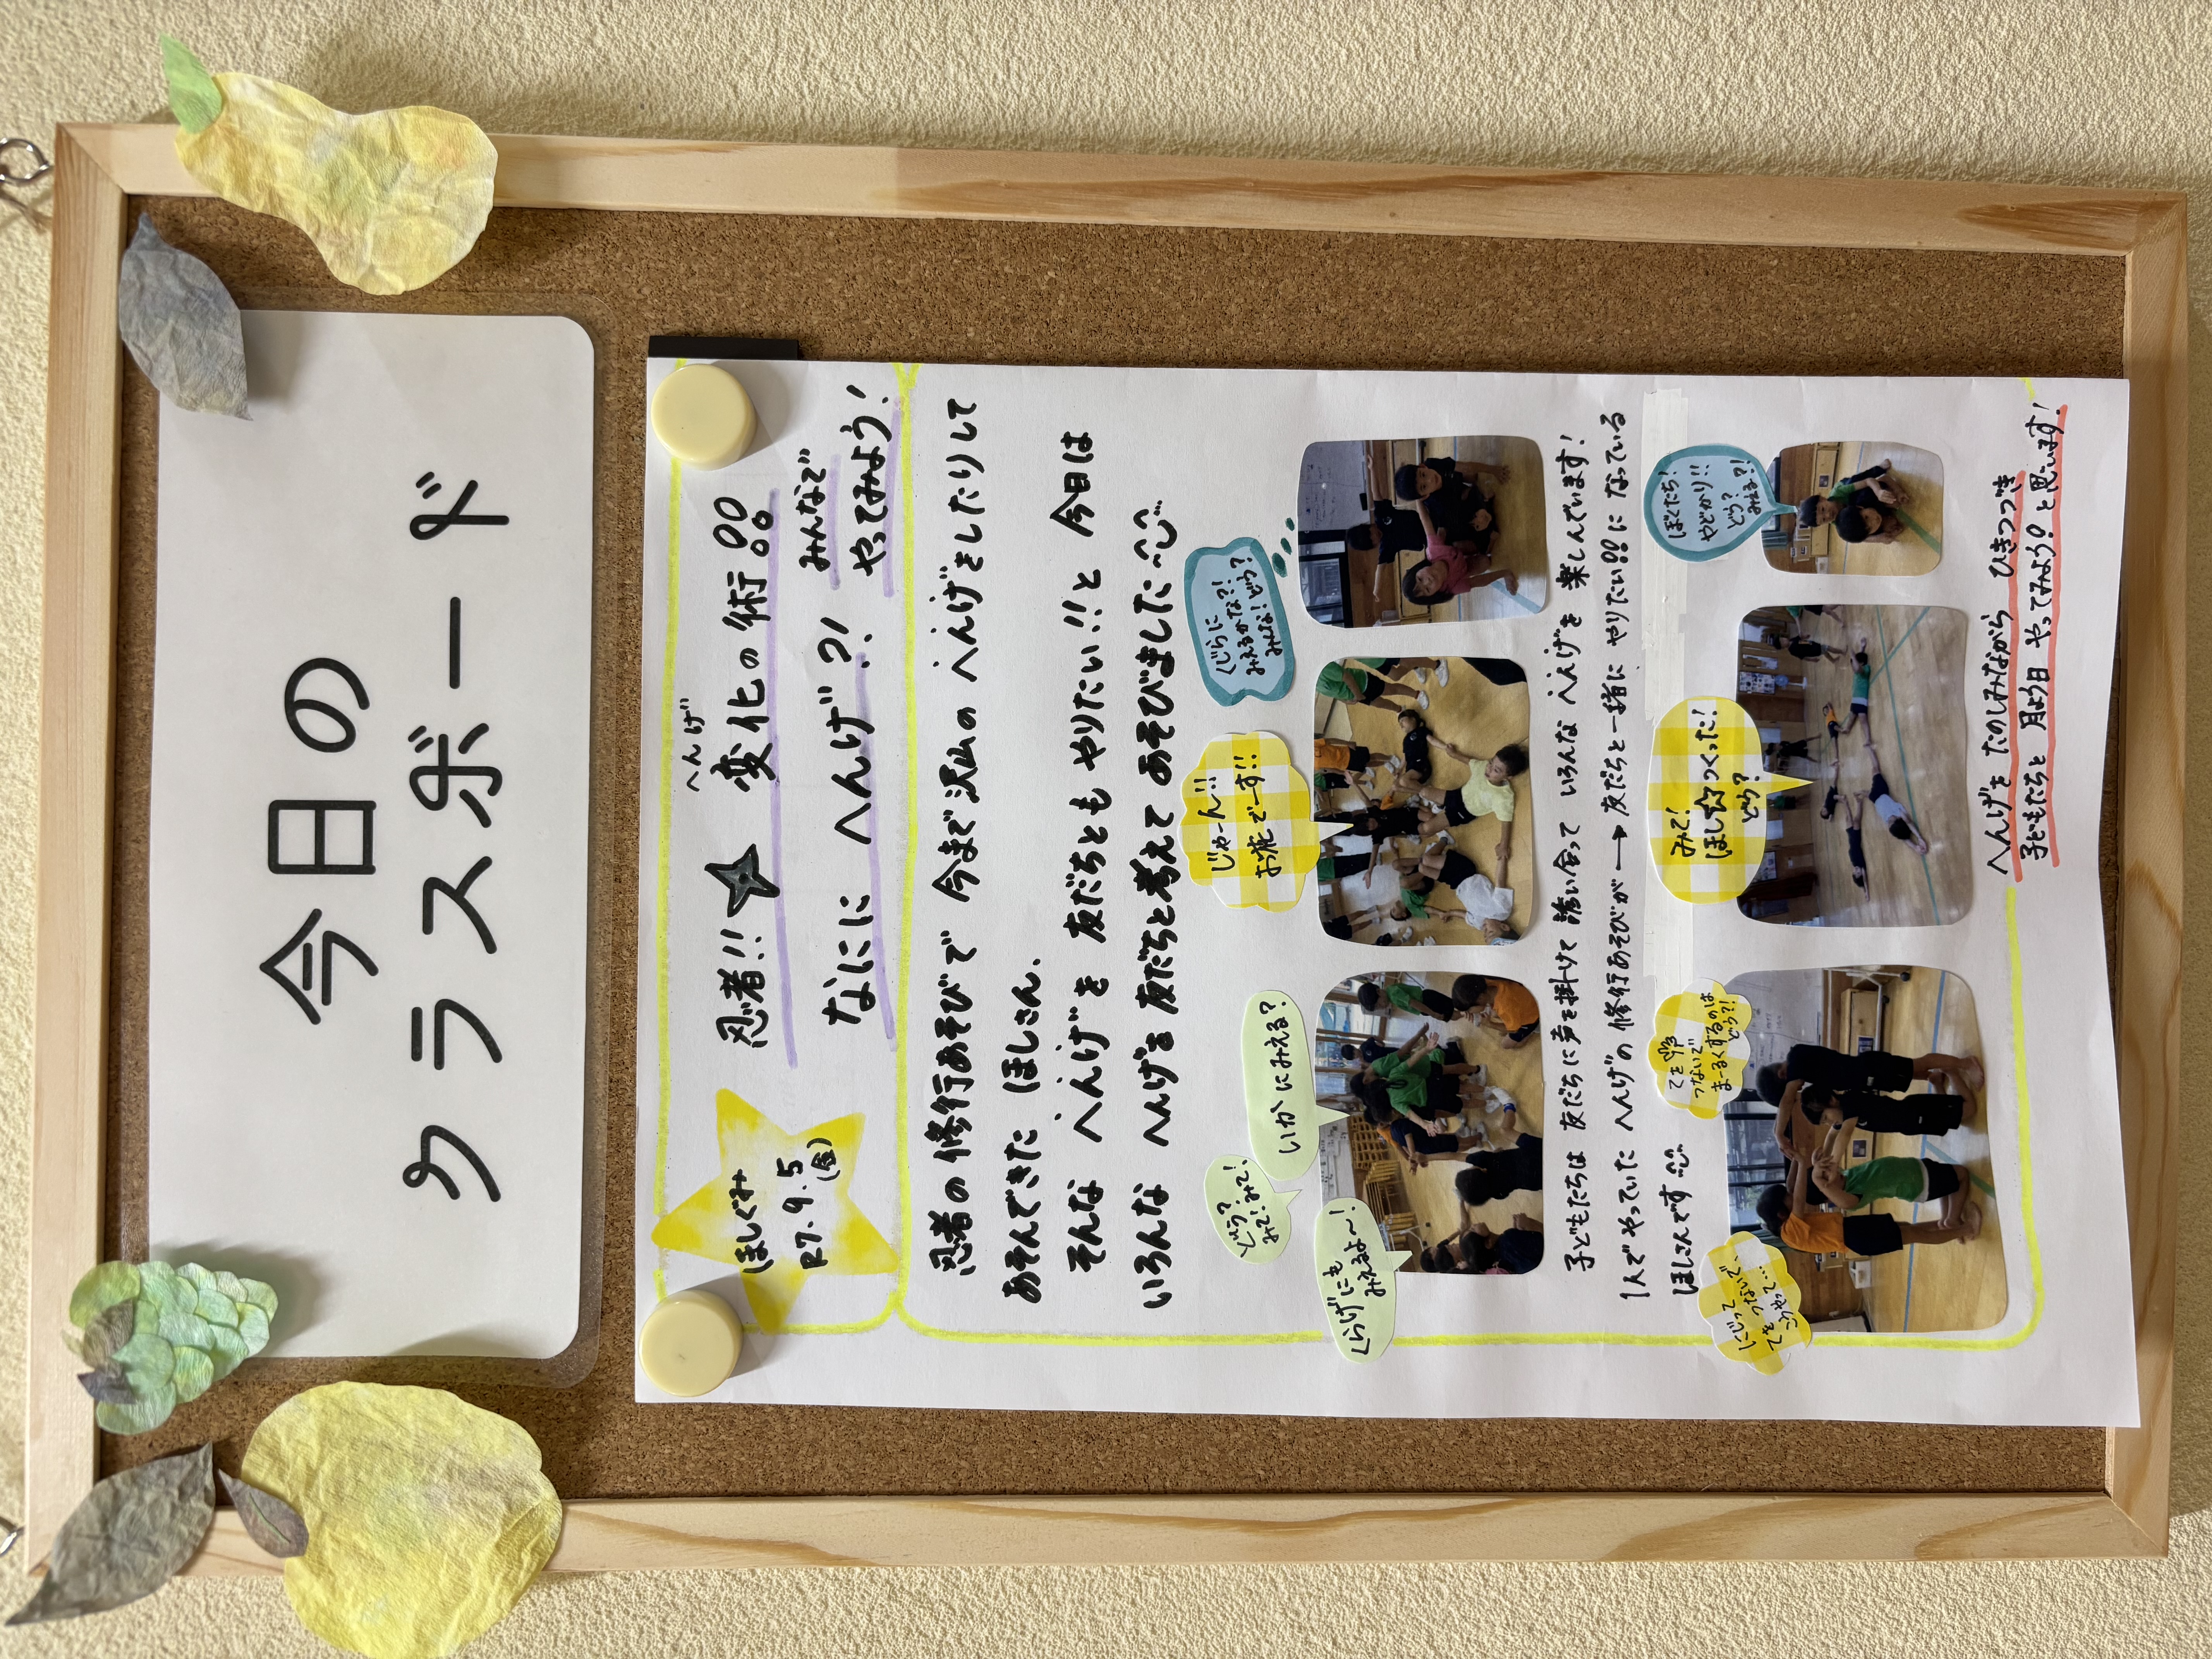 今日の
クラスボード
ほしぐみ
R7.9.5
(金)
忍者!! 変化の術!!
へんげ
なにに へんげ?!
みんなで
やってみよう!
忍者の修行あそびで 今まで沢山の へんげをしたりして
あそんできた ほしさん。
そんな へんげを 友だちとも やりたい!!と 今日は
いろんな へんげを 友だちと考えて あそびました
どう?
みて!みて!
いかにみえる?
くらげにも
みえるよ〜!
じゃーん!!
お花でーす!!
くじらに
みえるかな?!
みんな!どう?
子どもたちは 友だちに声を掛けて 誘い合って いろんな へんげを 楽しんでいます!
1人でやっていた へんげの 修行あそびが → 友だちと一緒に やりたい!!に なっている
ほしさんです
こうやって…
てを
つないで
まーるくするのは
どう?!
みて!
ほし☆つくった!
どう?
ぼくたち!
やどかり!!
どう?
みえる?!
へんげを たのしみながら ひきつづき
子どもたちと 月よう日 やってみよう!と思います!